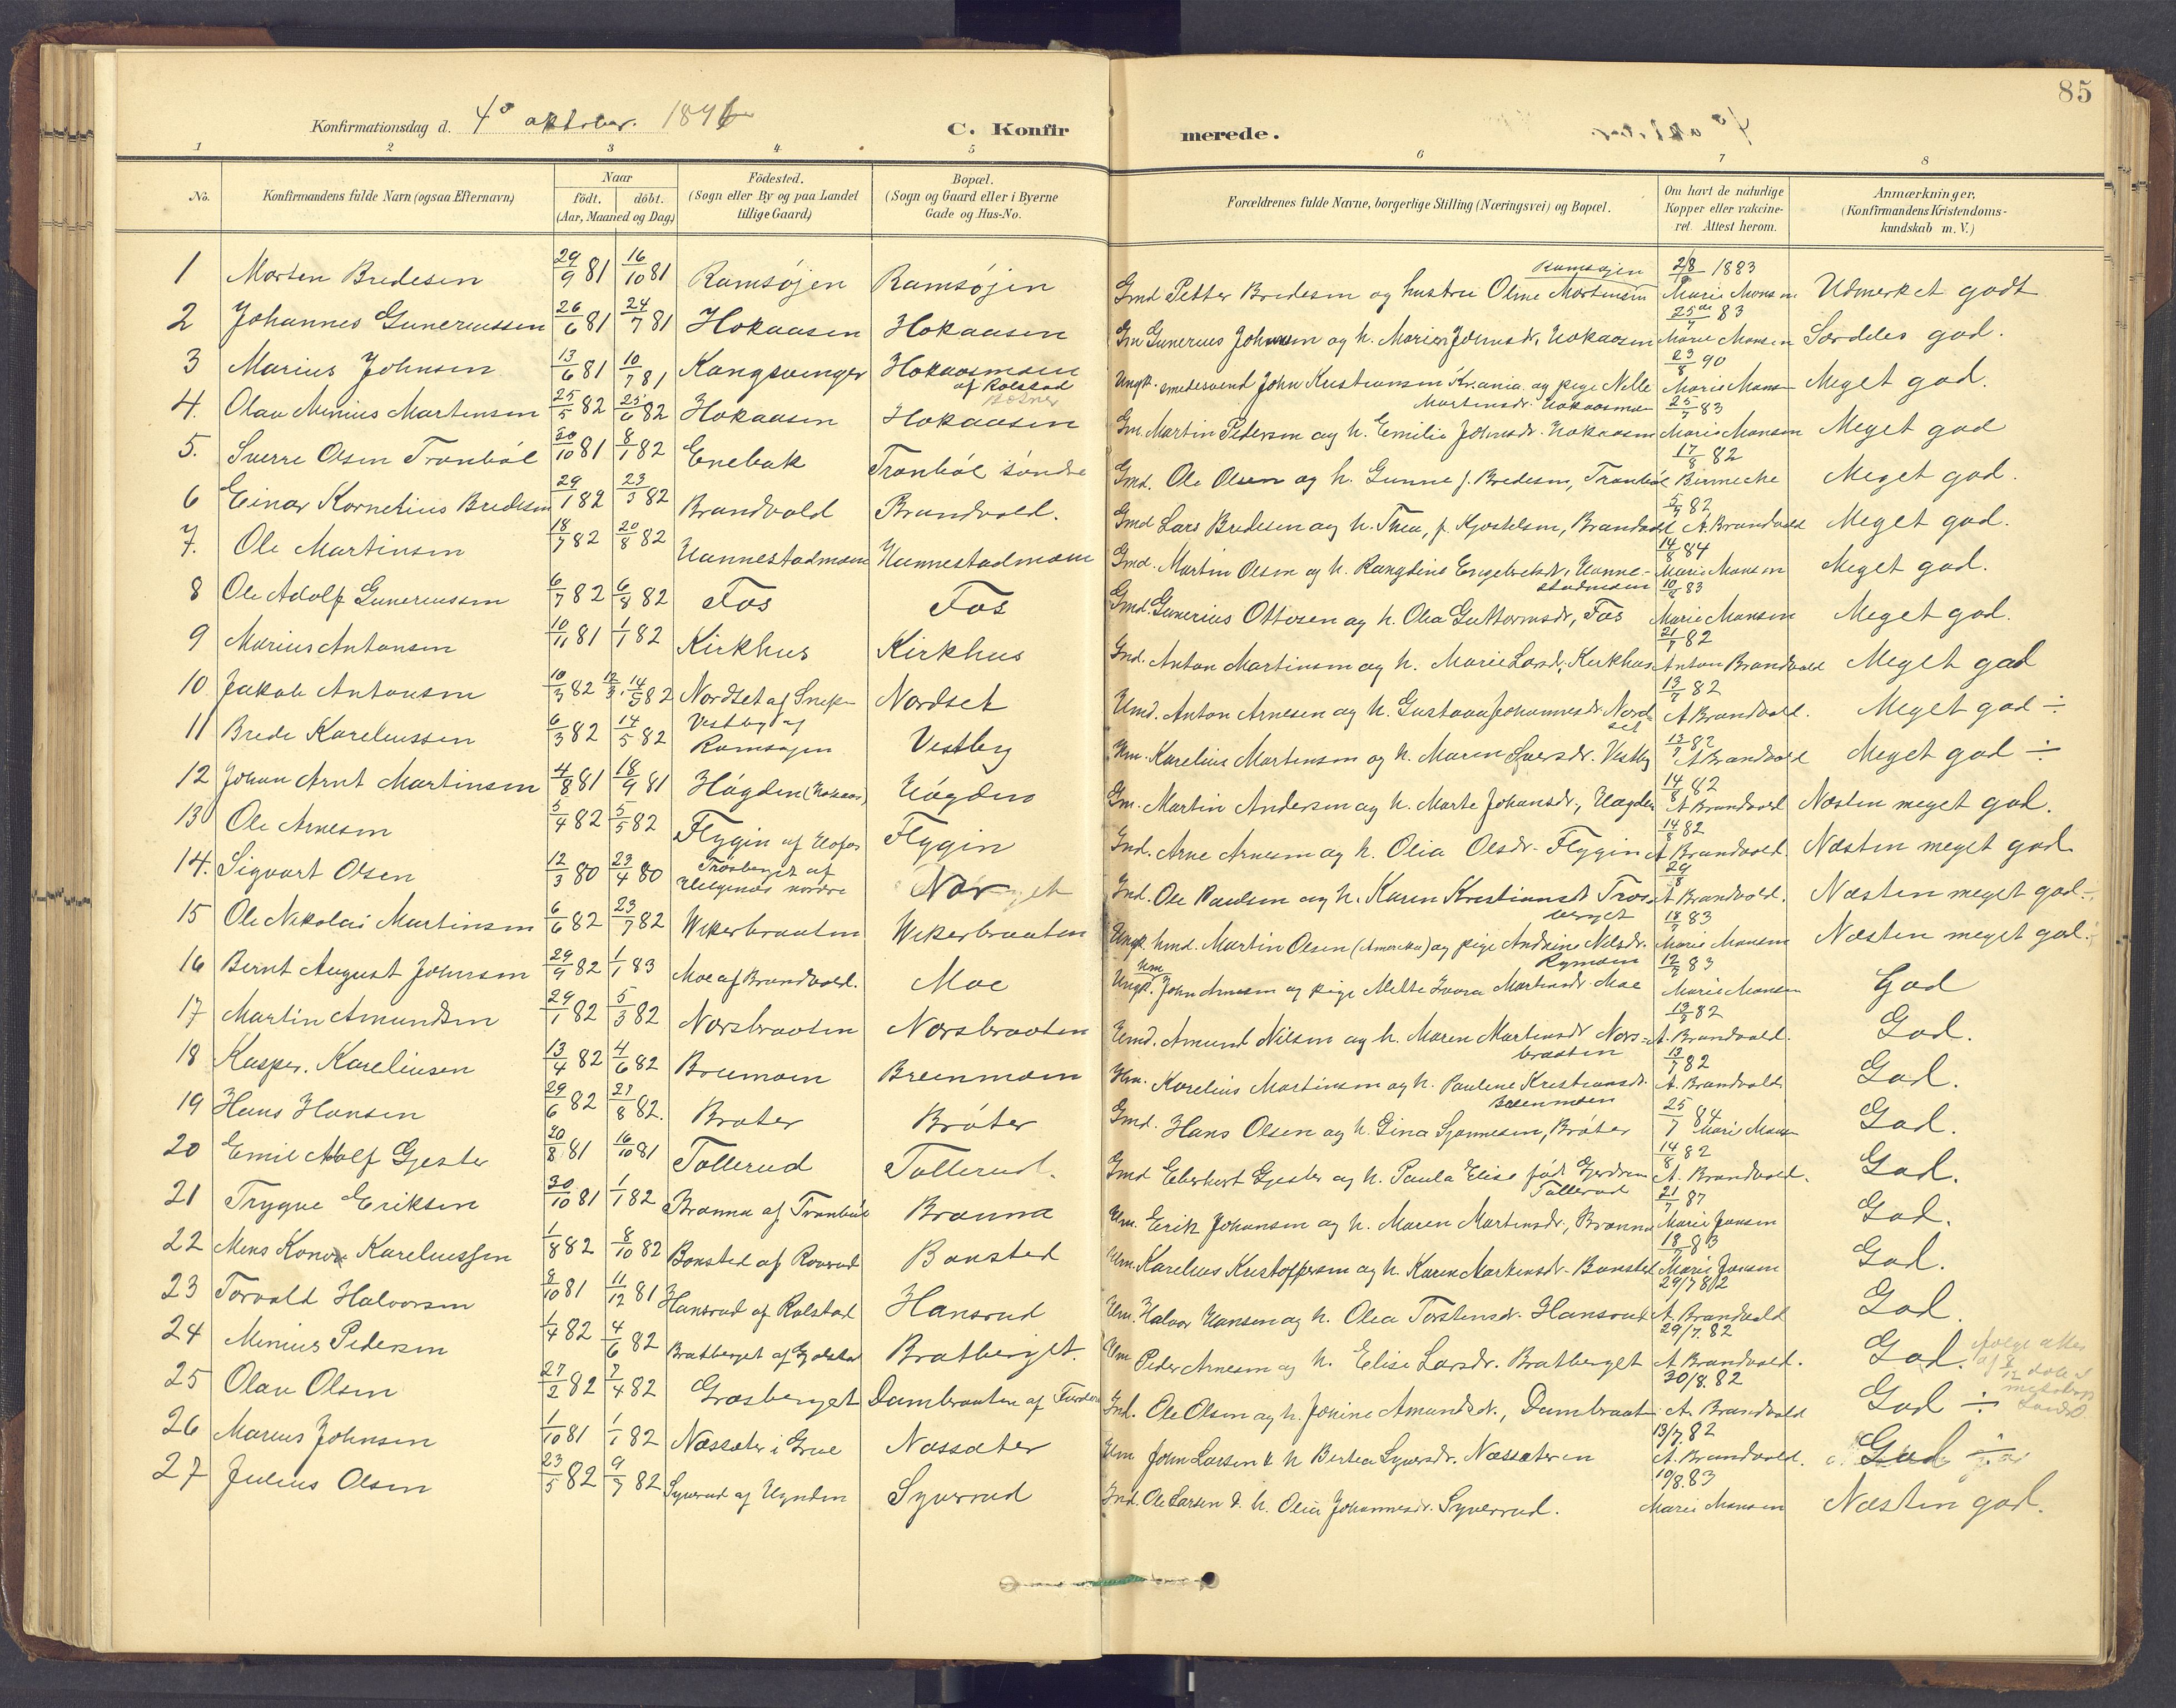 85
Konfirmationsdag d. 4º oktober. 1896
C. Konfirmerede.
1 2 3 4 5 6 7 8
No.
Konfirmandens fulde Navn (ogsaa Efternavn)
Naar
födt. döbt.
(Aar, Maaned og Dag)
Födested.
(Sogn eller By og paa Landet
tillige Gaard)
Bopæl.
(Sogn og Gaard eller i Byerne
Gade og Hus-No.
Forældrenes fulde Navne, borgerlige Stilling (Næringsvei) og Bopæl.
Om havt de naturlige
Kopper eller vakcine-
ret. Attest herom.
Anmærkninger.
(Konfirmandens Kristendoms-
kundskab m. V.)
1 Morten Bredesen 29/9 81 16/10 81 Ramsøjen Ramsøjen Gmd Petter Bredesen og hustru Oline Mortensen Ramsøjen 28/9 1883 Marie Monsen Udmerket godt
2 Johannes Gunerussen 26/6 81 24/7 81 Hokaasen Hokaasen Gm Gunerius Johnsen og h. Maren Johnsdr. Hokaasen 25de/7 83 Marie Monsen Særdeles god.
3 Marius Johnsen 13/6 81 10/7 81 Kongsvinger Hokaasmoen af Rolstad Ungk. smedsvend John Kristiansen Krania og pige Nille Martinsdr. Hokaasmoen 23/8 90 Marie Monsen Meget god.
4. Olav Minius Martensen 25/5 82 25/6 82 Hokaasen Hokaasen Gm. Martin Pedersen og h. Emilie Johnsdr. Hokaasen 25/7 83 Marie Monsen Meget god
5. Sverre Olsen Tronböl 30/10 81 8/1 82 Enebak Tronböl söndre Gmd. Ole Olsen og h. Gunne f. Bredesen, Tronböl 17/8 82 Meget god.
6 Einar Kornelius Bredesen 29/1 82 23/3 82 Brandvold Brandvold. Gmd Lars Bredesen og h. Thea, f. Kjostelsen, Brandvold 5/7 82 A. Brandvold Meget god.
7. Ole Martinsen 18/7 82 20/8 82 Hunnestadmoen Hunnestadmoen Gmd. Martin Olsen og h. Rangdine Engebretsdr, Hunne-stadmoen 14/8 84 Marie Monsen Meget god.
8 Ole Adolf Gunerussen 6/7 82 6/8 82 Fos Fos Gmd Gunerius Ottosen og h. Olea Guttormsdr, Fos 10/8 83 Marie Monsen Meget god.
9 Marius Antonsen 10/11 81 1/1 82 Kirkhus Kirkhus Ind. Anton Martinsen og h. Marie Larsdr, Kirkhus 21/7 82 Anton Brandvold Meget god
10 Jakob Antonsen 10/3 82 12/3. 14/5 82 Nordset af Nordset Anton Arnesen og h. Gustava Johannesdr Nordset 13/7 82 A Brandvold. Meget god ÷
11 Brede Karelussen 6/3 82 14/5 82 Vestby af Ramsøjen Vestby Hm. Karelius Martensen og h. Maren Syversdr. Vestby 13/7 82 A Brandvold Meget god ÷
12 Johan Arnt Martinsen 4/8 81 18/9 81 Høgden (Hokaas) Høgden Gm. Martin Andersen og h. Marte Johansdr, Høgden 14/8 82 A Brandvold Næsten meget god.
13 Ole Arnesen 5/4 82 5/5 82 Flygin af Hofos Flygin Ind. Arne Arnesen og h. Olia Olsdr. Flygin 14/8 82 A Brandvold Næsten meget god
14. Sigvart Olsen 12/3 80 23/4 80 Trosberget af Helgenæs nordre Norget Ind. Ole Paulsen og h. Karen Kristiansdr Tros-berget 29/8 A Brandvold. Næsten meget god.
15 Ole Nikolai Martinsen 6/6 82 23/7 82 Wikerbraaten Wikerbraaten Ungk. hmd. Martin Olsen (Amerika) og pige Andrine Nilsdr. Rymoen 18/7 83 Marie Monsen Næsten meget god.
16 Bernt August Johnsen 29/9 82 1/1 83 Moe af Brandvold. Moe Ungk. John Arnesen og pige Mette Martinsdr. Moe 12/7 83 Marie Monsen God
17 Martin Amundsen 29/1 82 5/3 82 Norsbraaten Norsbraaten Amund Nilsen og h. Maren Martinsdr Nors-braaten 13/7 82 A. Brandvold. God.
18 Kasper. Kareliusen 13/4 82 4/6 82 Breenmoen Breenmoen Hm. Karelius Martinsen og h. Pauline Kristiansdr. Breenmoen 13/7 82 A. Brandvold God.
19 Hans Hansen 29/6 82 27/8 82. Brøter Brøter Gmd. Hans Olsen og h. Gina Syvertsen, Brøter 25/7 84 Marie Monsen God.
20 Emil Adolf Gjester 20/8 81 16/10 81 Tollerud Tollerud. Gmd Eberhart Gjester og h. Paula Elise född Gjerdrum Tollerud 14/8 82 A. Brandvold. God.
21 Trygve Eriksen 30/10 81 1/1 82 Bronna af Tronböl Bronna Hm. Erik Johansen og h. Maren Martinsdr, Bronna 21/7 87 Marie Jonsen God.
22 Mens Konor Karelussen 1/8 82 8/10 82 Bonsted af Roverud Bonsted Hm. Karelius Kristoffersen og h. Karen Martinsdr. Bonsted 18/7 83 Marie Jonsen God.
23 Torvald Halvorsen 8/10 81 11/12 81 Hansrud af Rolstad Hansrud Hm. Halvor Hansen og h. Olea Torstensdr. Hansrud 29/7 82 A. Brandvold God.
24 Minius Pedersen 1/4 82 4/6 82 Bratberget af Gjølstad Bratberget. Hm Peder Arnesen og h. Elise Larsdr. Bratberget 29/7. 82 A Brandvold. God.
25 Olav Olsen 27/2 82 7/4 82 Grosberget Dambraaten af Ind. Ole Olsen og h. Jonine Amundsdr., Dambraaten 30/8. 82 A. Brandvold God ÷
26 Marius Johnsen 1/10 81 1/1 82 Næssæter i Grue Næssæter Hm John Larsen & h Bertea Syversdr. Næssæteren 13/7. 82 A. Brandvold. God ÷
27 Julius Olsen 23/5 82 9/7 82 Syverud af Hynden Syverrud Ind. Ole Larsen & h. Olia Johannesdr. Syverrud. 19/8. 83 Marie Monsen Næsten god.